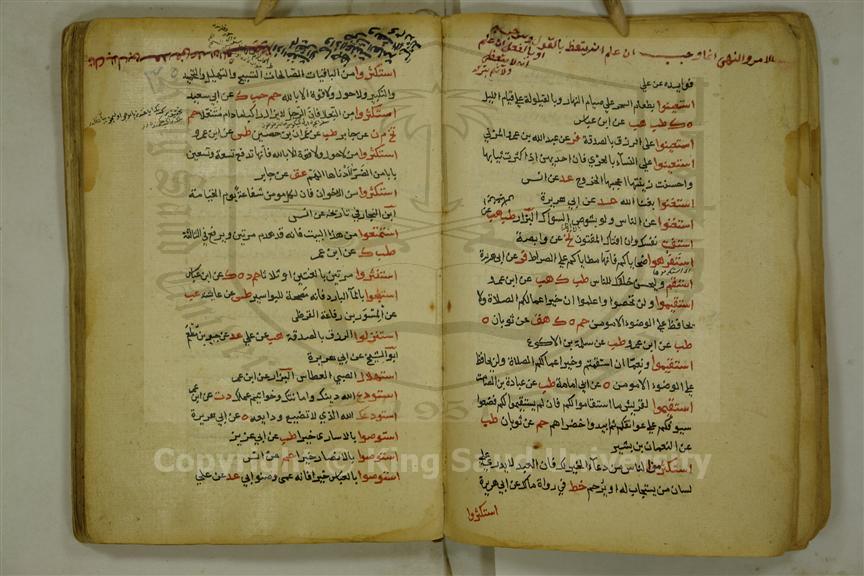 في يده عن علي
استعينوا بطعام السحر على صيام النهار وبالقيلولة على قيام الليل
ه ك طب هب عن ابن عباس
استعينوا على الرزق بالصدقة فر عن عبدالله بن عمرو المزني
استعينوا على النساء بالعري فان احديهن اذا كثرت ثيابها
واحسنت زينتها اعجبها الخروج عد عن انس
استغنوا بغناء الله عد عن ابي هريرة
استغنوا عن الناس ولو بشوص السواك البزار طب هب عن
استفت نفسك وان افتاك المفتون تخ عن وابصة
استفرهوا ضحاياكم فانها مطاياكم على الصراط فر عن ابي هريرة
استقم وليحسن خلقك للناس طب ك هب عن ابن عمرو
استقيموا ولن تحصوا واعلموا ان خير اعمالكم الصلاة ولا
يحافظ على الوضوء الا مومن حم ه ك هق عن ثوبان ه
طب عن ابن عمرو طب عن سلمة بن الاكوع
استقيموا ونعما ان استقمتم وخير اعمالكم الصلاة ولن يحافظ
على الوضوء الا مومن ه عن ابي امامة طب عن عبادة بن الصامت
استقيموا لقريش ما استقاموا لكم فان لم يستقيموا لكم فضعوا
سيوفكم على عواتقكم ثم ابيدوا خضراهم حم عن ثوبان طب
عن النعمان بن بشير
استكثروا من الناس من دعاء الخير لك فان العبد لا يدري على
لسان من يستجاب له او يرحم خط في رواة مالك عن ابي هريرة
استكثروا
استكثروا من الباقيات الصالحات التسبيح والتهليل والتحميد
والتكبير ولا حول ولا قوة الا بالله حم حب ك عن ابي سعيد
استكثروا من النعال فان الرجل لا يزال راكبا ما دام منتعلا حم
تخ م ن عن جابر طب عن عمران بن حصين طس عن ابن عمرو
استكثروا من لا حول ولا قوة الا بالله فانها تدفع تسعة وتسعين
بابا من الضر ادناها الهم عق عن جابر
استكثروا من الاخوان فان لكل مومن شفاعة يوم القيامة
ابن النجار في تاريخه عن انس
استمتعوا من هذا البيت فانه قد هدم مرتين ويرفع في الثالثة
طب ك عن ابن عمر
استنثروا مرتين بالغتين او ثلاثا حم د ه ك عن ابن عباس
استنجوا بالماء البارد فانه مصحة للبواسير طس عن عايشة عب
عن المسور بن رفاعة القرظي
استنزلوا الرزق بالصدقة هب عن علي عد عن جبير بن مطعم
ابو الشيخ عن ابي هريرة
استهلال الصبي العطاس البزار عن ابن عمر
استودع الله دينك وامانتك وخواتيم عملك د ت عن ابن عمر
استودعك الله الذي لا تضيع ودايعه ه عن ابي هريرة
استوصوا بالاسارى خيرا طب عن ابي عزيز
استوصوا بالانصار خيرا حم عن انس
استوصوا بالعباس خيرا فانه عمي وصنو ابي عد عن علي
Copyright © King Saud University